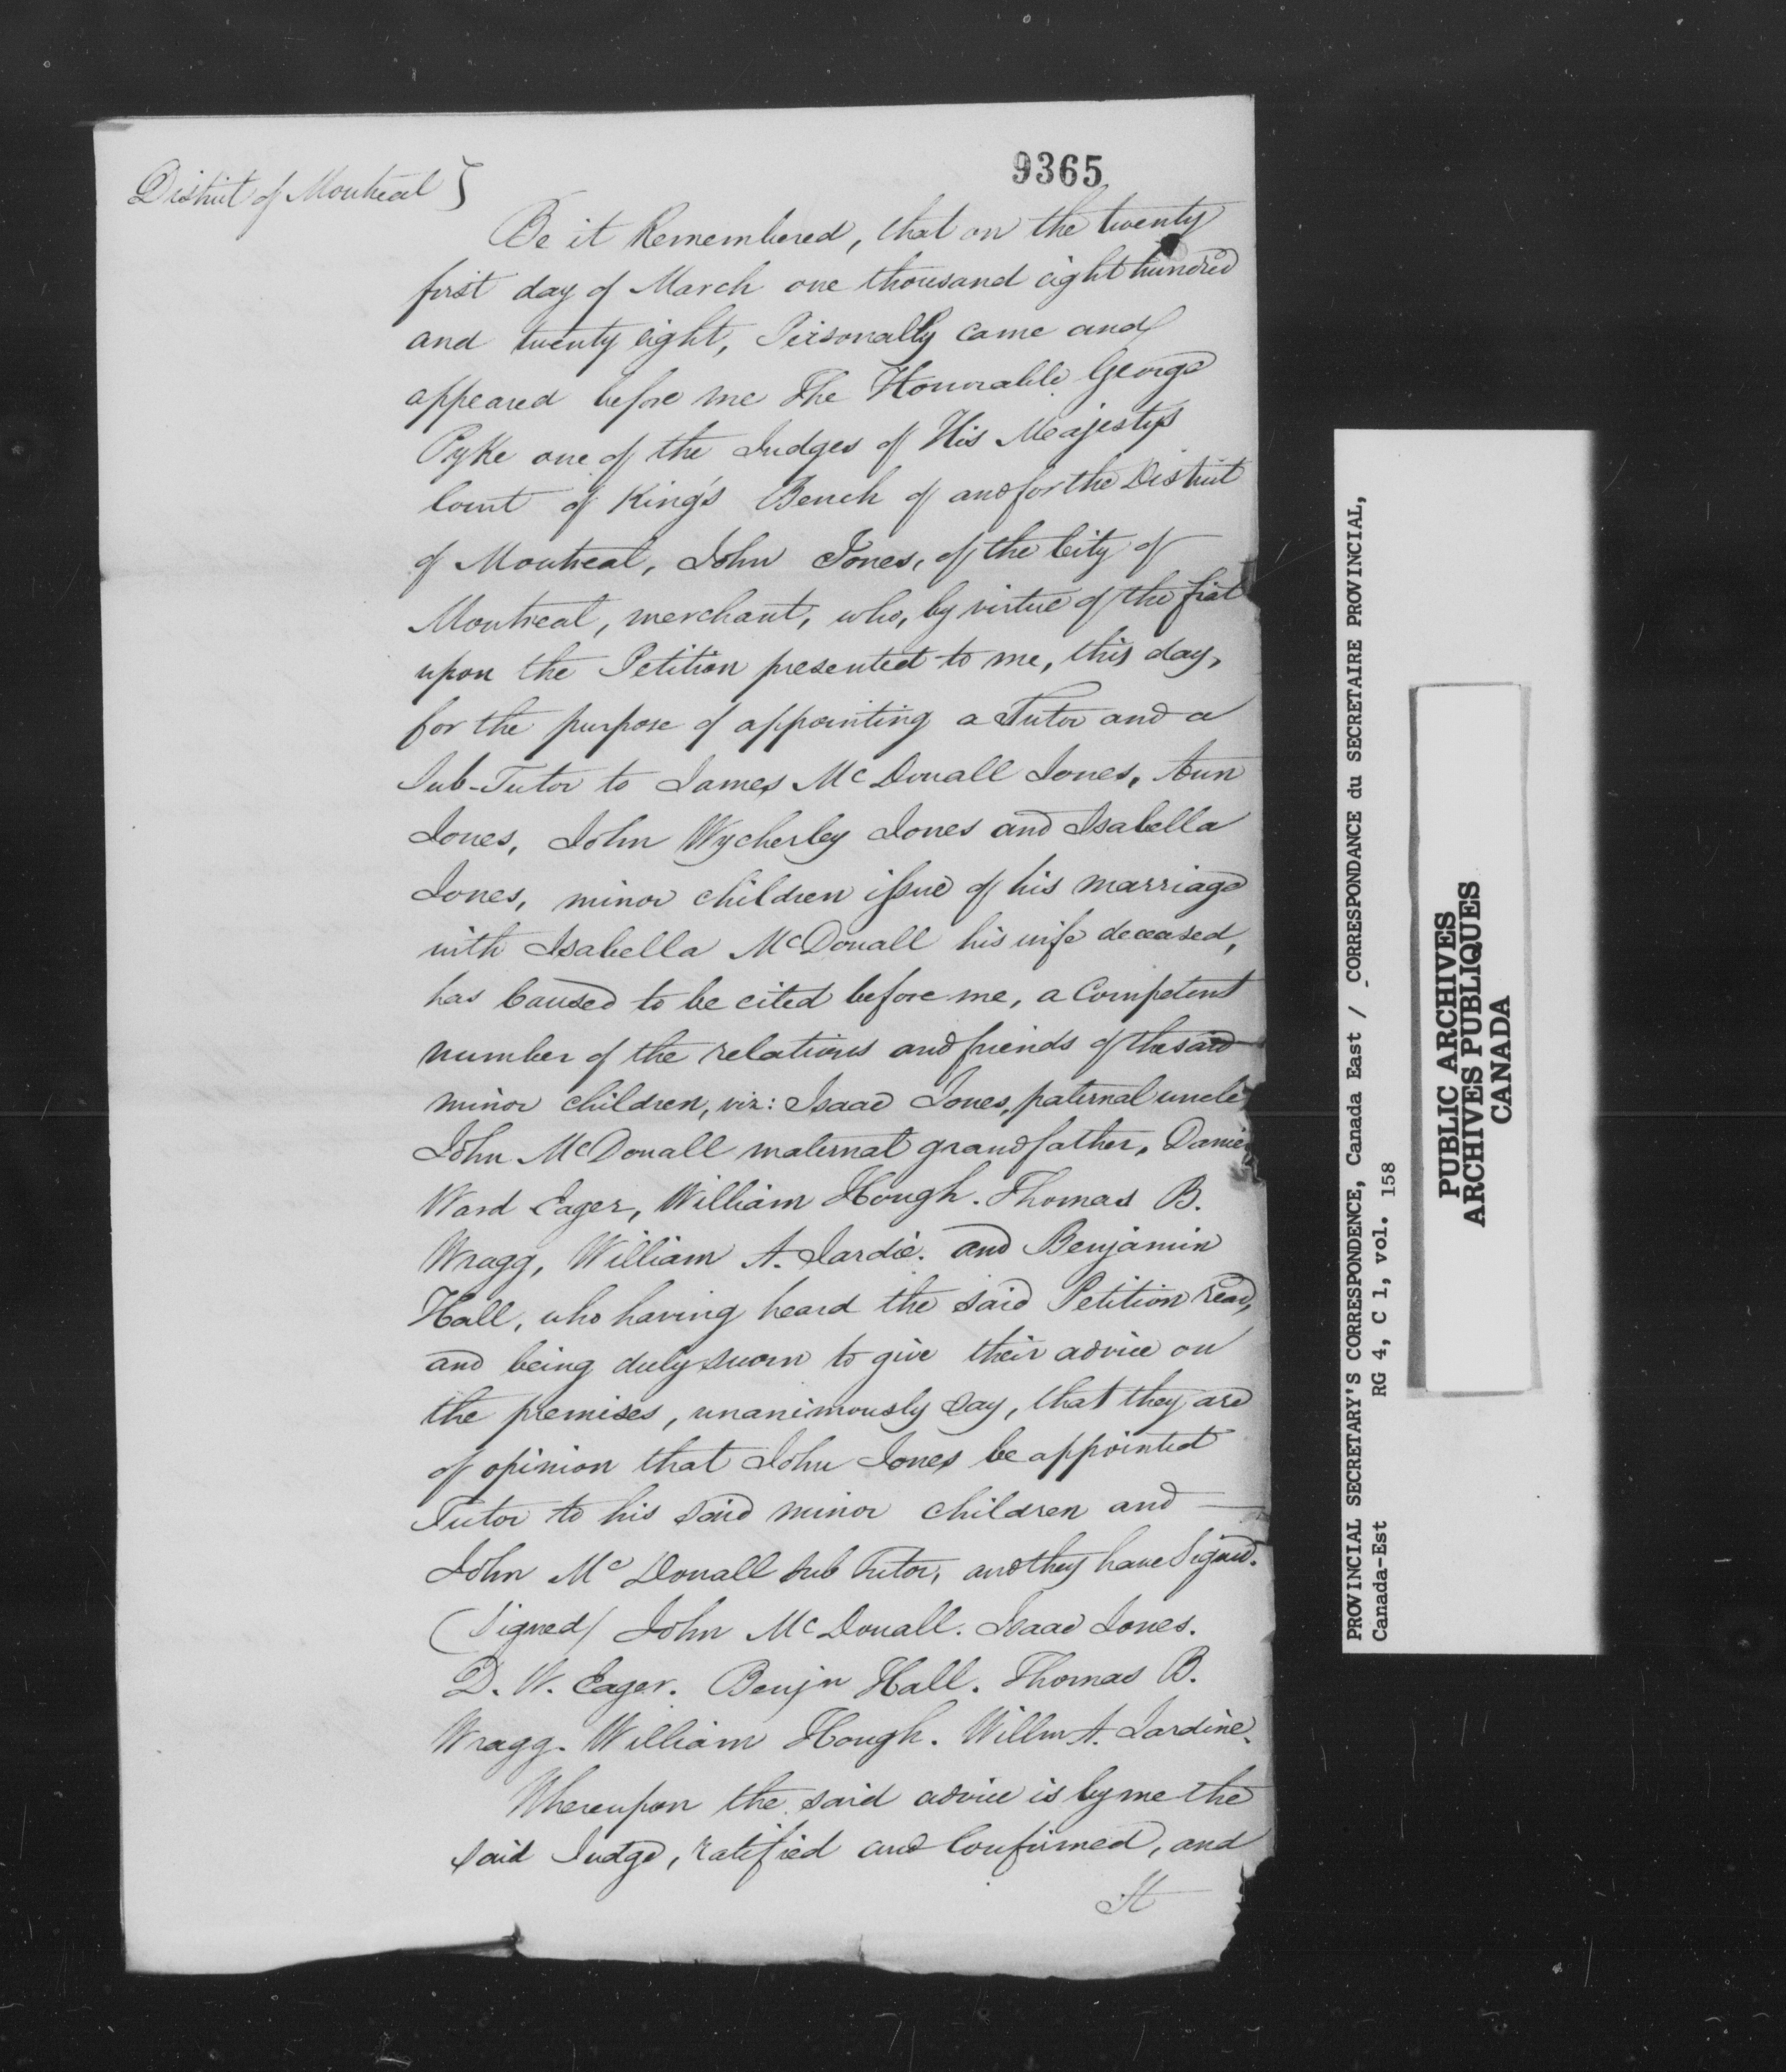 9365
District of Montreal }
Be it Remembered, that on the twenty
first day of March one thousand eight hundred
and twenty eight, Personally came and
appeared before me The Honorable George
Pyke one of the Judges of His Majesty's
Court of King's Bench of and for the District
of Montreal, John Jones, of the City of
Montreal, merchant, who, by virtue of the fiat
upon the Petition presented to me, this day,
for the purpose of appointing a Tutor and a
Sub-Tutor to James McDouall Jones, Ann
Jones, John Wycherley Jones and Isabella
Jones, minor children issue of his marriage
with Isabella McDouall his wife deceased,
has Caused to be cited before me, a Competent
number of the relations and friends of the said
minor children, viz: Isaac Jones, paternal uncle
John McDouall maternal grandfather, Daniel
Ward Eager, William Hough. Thomas B.
Wragg, William A. Jardie. and Benjamin
Hall, who having heard the said Petition read,
and being duly sworn to give their advice on
the premises, unanimously say, that they are
of opinion that John Jones be appointed
Tutor to his said minor children and —
John McDouall sub Tutor, and they have Signed.
(Signed) John McDouall. Isaac Jones.
D. W. Eager. Benjn Hall. Thomas B.
Wragg. William Hough. Willm A. Jardine.
Whereupon the said advice is by me the
said Judge, ratified and Confirmed, and
It
PROVINCIAL SECRETARY'S CORRESPONDENCE, Canada East / CORRESPONDANCE du SECRETAIRE PROVINCIAL,
Canada-Est RG 4, C 1, vol. 158
PUBLIC ARCHIVES
ARCHIVES PUBLIQUES
CANADA